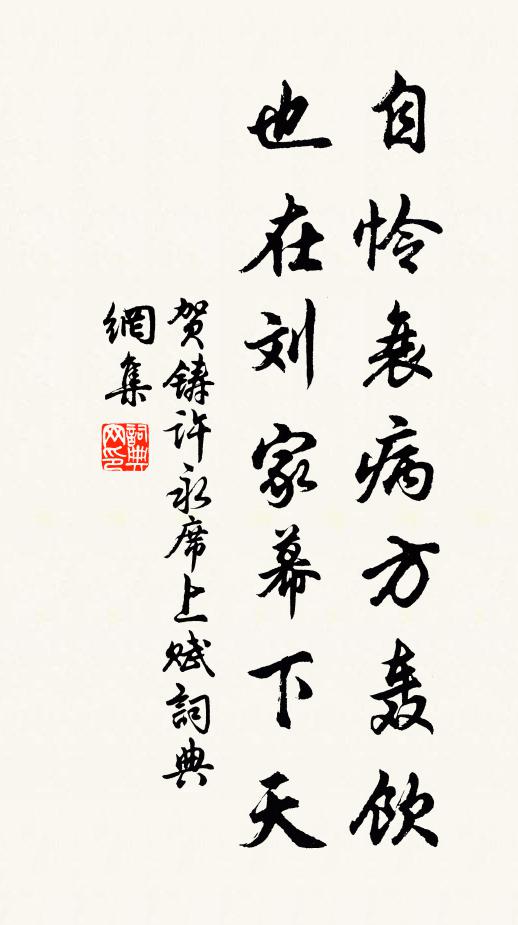 自怜衰病方轰饮
也在刘家幕下天
贺铸许永席上赋詞典
網集
詞典
网印